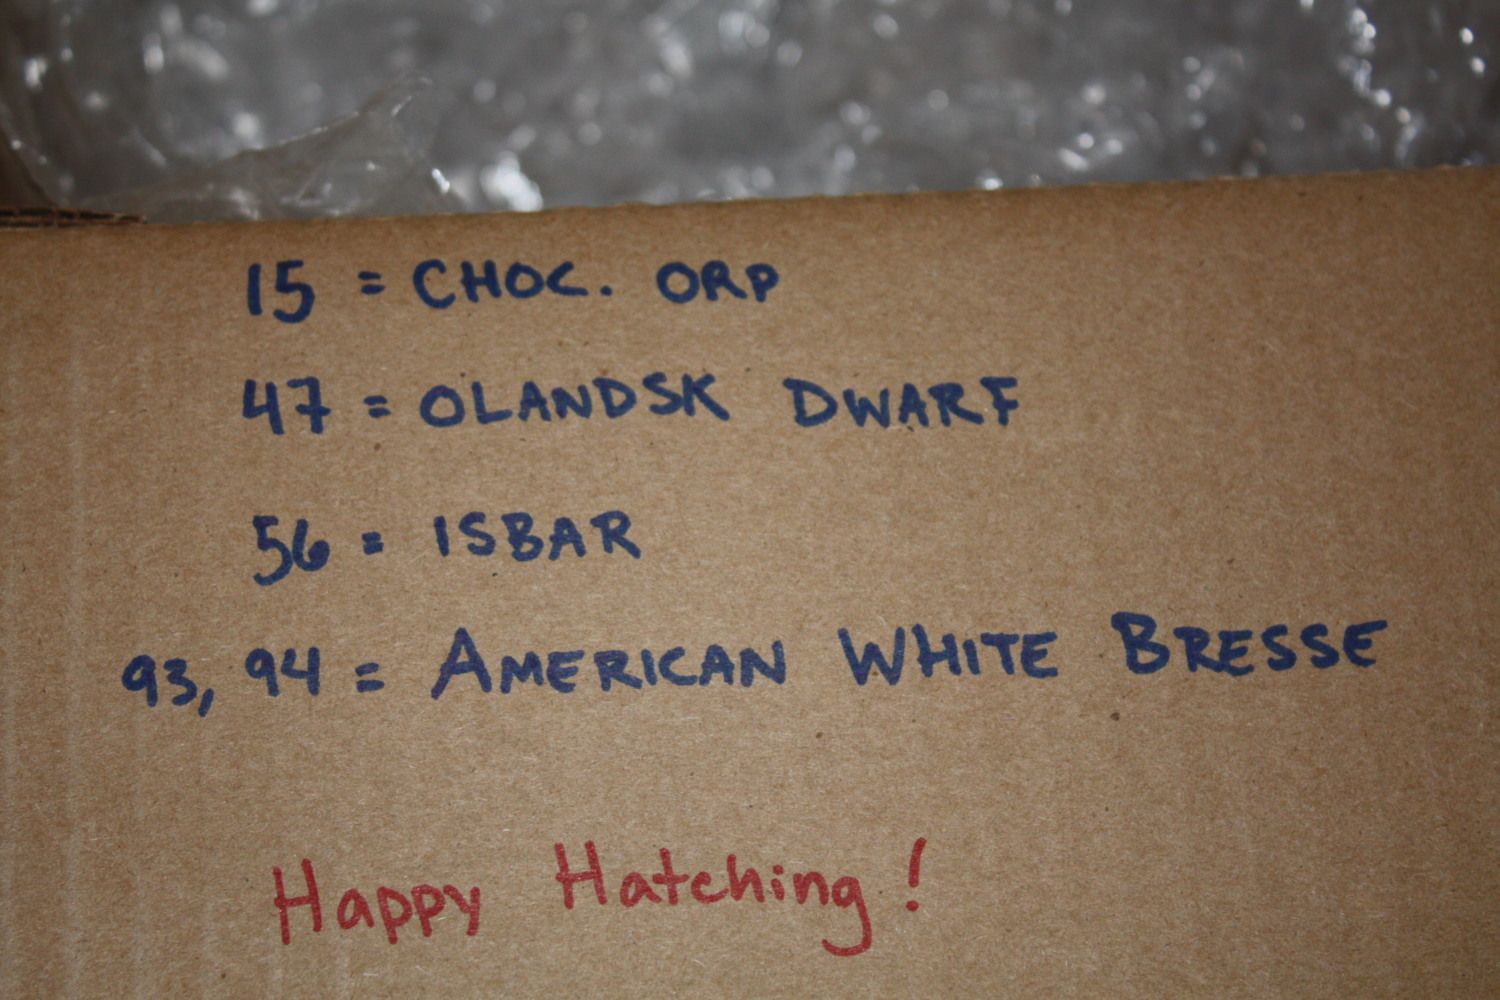 15 = CHOC. ORP
47 = OLANDSK DWARF
56 = ISBAR
93, 94 = AMERICAN WHITE BRESSE
Happy Hatching!